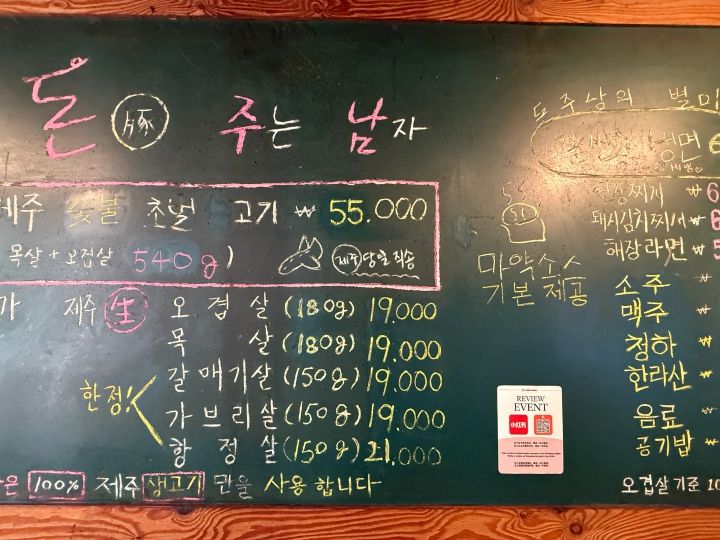 돈 豚 주는 남자
제주 숯불 초벌 고기 ₩ 55.000
목살 + 오겹살 540g)
제주 당일 직송
가 제주 生 오겹살 (180g) 19.000
목살 (180g) 19.000
한정!
갈매기살 (150g) 19.000
가브리살 (150g) 19.000
항정살 (150g) 21.000
은 100% 제주 생고기 만을 사용합니다
돈주남의 별미
냉면 6
마약소스
기본 제공
된장찌개 ₩ 6
돼지김치찌개 ₩ 6
해장라면 ₩ 5
소주 ₩
맥주 ₩
청하 ₩
한라산 ₩
음료 ₩
공기밥 ₩
오겹살 기준 10
REVIEW
EVENT
小红书